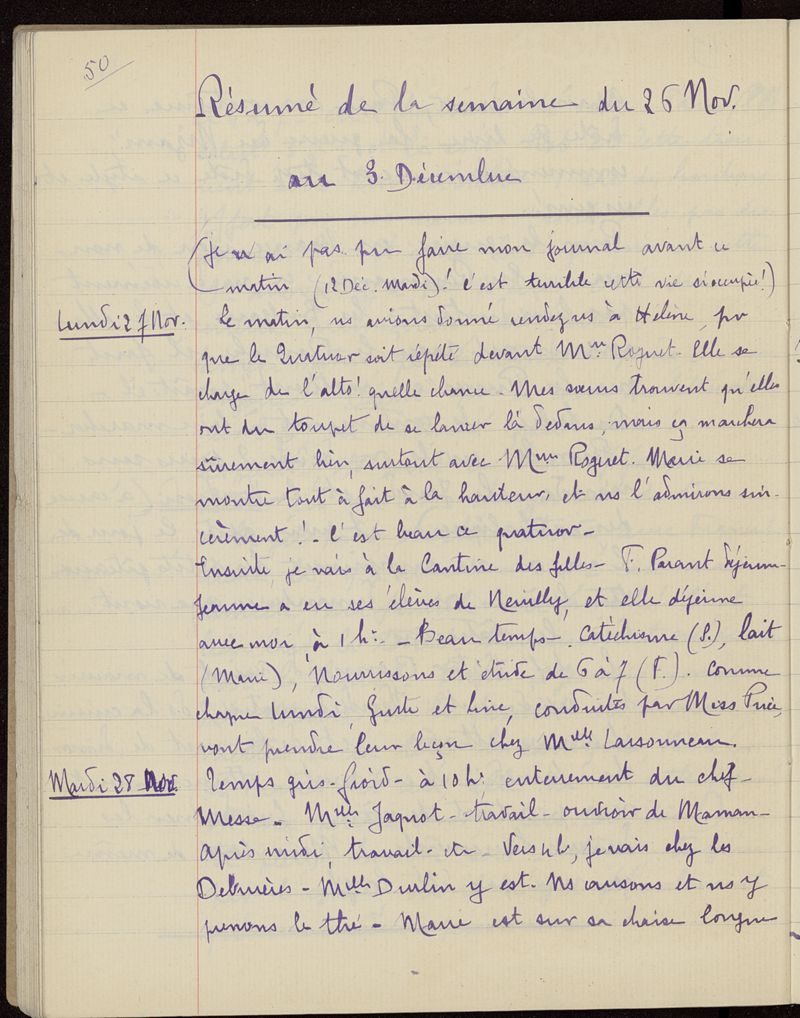 50
Résumé de la semaine du 26 Nov.
au 3 Décembre
(je n'ai pas pu faire mon journal avant ce
matin (12 Déc. Mardi)! c'est terrible cette vie si occupée!)
Lundi 27 Nov. Le matin, ns avions donné rendez vs à Helène, pr
que le Quatuor soit répété devant Mme Roguet. Elle se
charge de l'alto! quelle chance. Mes sœurs trouvent qu'elles
ont du toupet de se lancer là dedans, mais ça marchera
sûrement bien, surtout avec Mme Roguet. Marie se
montre tout à fait à la hauteur, et ns l'admirons sin-
cèrement! - c'est beau ce quatuor -
Ensuite, je vais à la Cantine des filles - T. Parant déjeune -
Jeanne a eu ses élèves de Neuilly, et elle déjeune
avec moi à 1 h: - Beau temps - Catéchisme (S.), lait
(Marie), Nourrissons et étude de 6 à 7 (F.). Comme
chaque lundi, Guste et Line, conduites par Miss Price,
vont prendre leur leçon chez Melle Larsonneau.
Mardi 28 Nov. Temps gris - froid - à 10 h, enterrement du chef -
Messe - Melle Jaquot - travail - ouvroir de Maman -
Après midi, travail - etc - Vers 4 h, je vais chez les
Debrières - Melle Durlin y est. Ns causons et ns y
prenons le thé - Marie est sur sa chaise longue